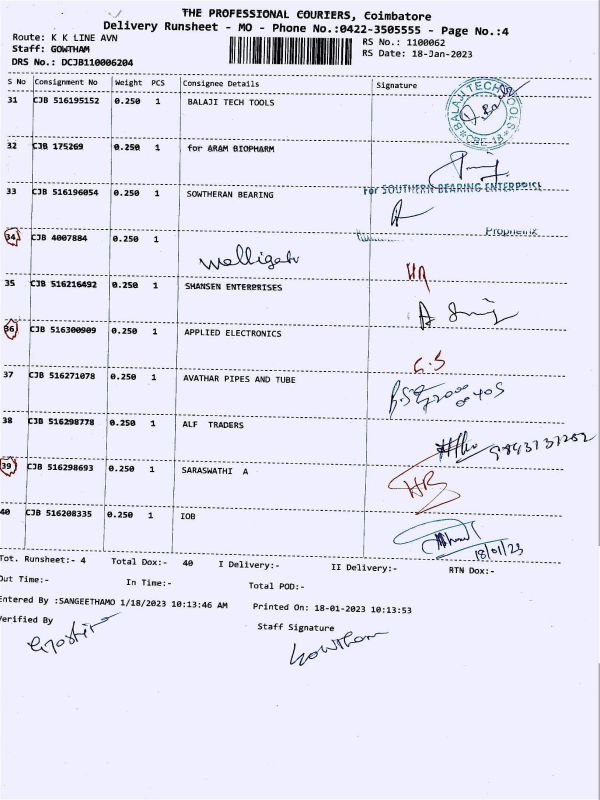 THE PROFESSIONAL COURIERS, Coimbatore
Delivery Runsheet - MO - Phone No.:0422-3505555 - Page No.:4
Route: K K LINE AVN
Staff: GOWTHAM
DRS No.: DCJB110006204
RS No.: 1100062
RS Date: 18-Jan-2023
S No Consignment No Weight PCS Consignee Details Signature
31 CJB 516195152 0.250 1 BALAJI TECH TOOLS
BALAJI TECH TOOLS CBE-18
32 CJB 175269 0.250 1 for ARAM BIOPHARM
33 CJB 516196054 0.250 1 SOWTHERAN BEARING
For SOUTHERN BEARING ENTERPRISE
34 CJB 4007884 0.250 1
35 CJB 516216492 0.250 1 SHANSEN ENTERPRISES
36 CJB 516300909 0.250 1 APPLIED ELECTRONICS
G.S
37 CJB 516271078 0.250 1 AVATHAR PIPES AND TUBE
38 CJB 516298778 0.250 1 ALF TRADERS
39 CJB 516298693 0.250 1 SARASWATHI A
40 CJB 516208335 0.250 1 IOB
18/01/23
Tot. Runsheet:- 4 Total Dox:- 40 I Delivery:- II Delivery:- RTN Dox:-
Out Time:- In Time:- Total POD:-
Entered By :SANGEETHAMO 1/18/2023 10:13:46 AM Printed On: 18-01-2023 10:13:53
Verified By Staff Signature
Gowtham